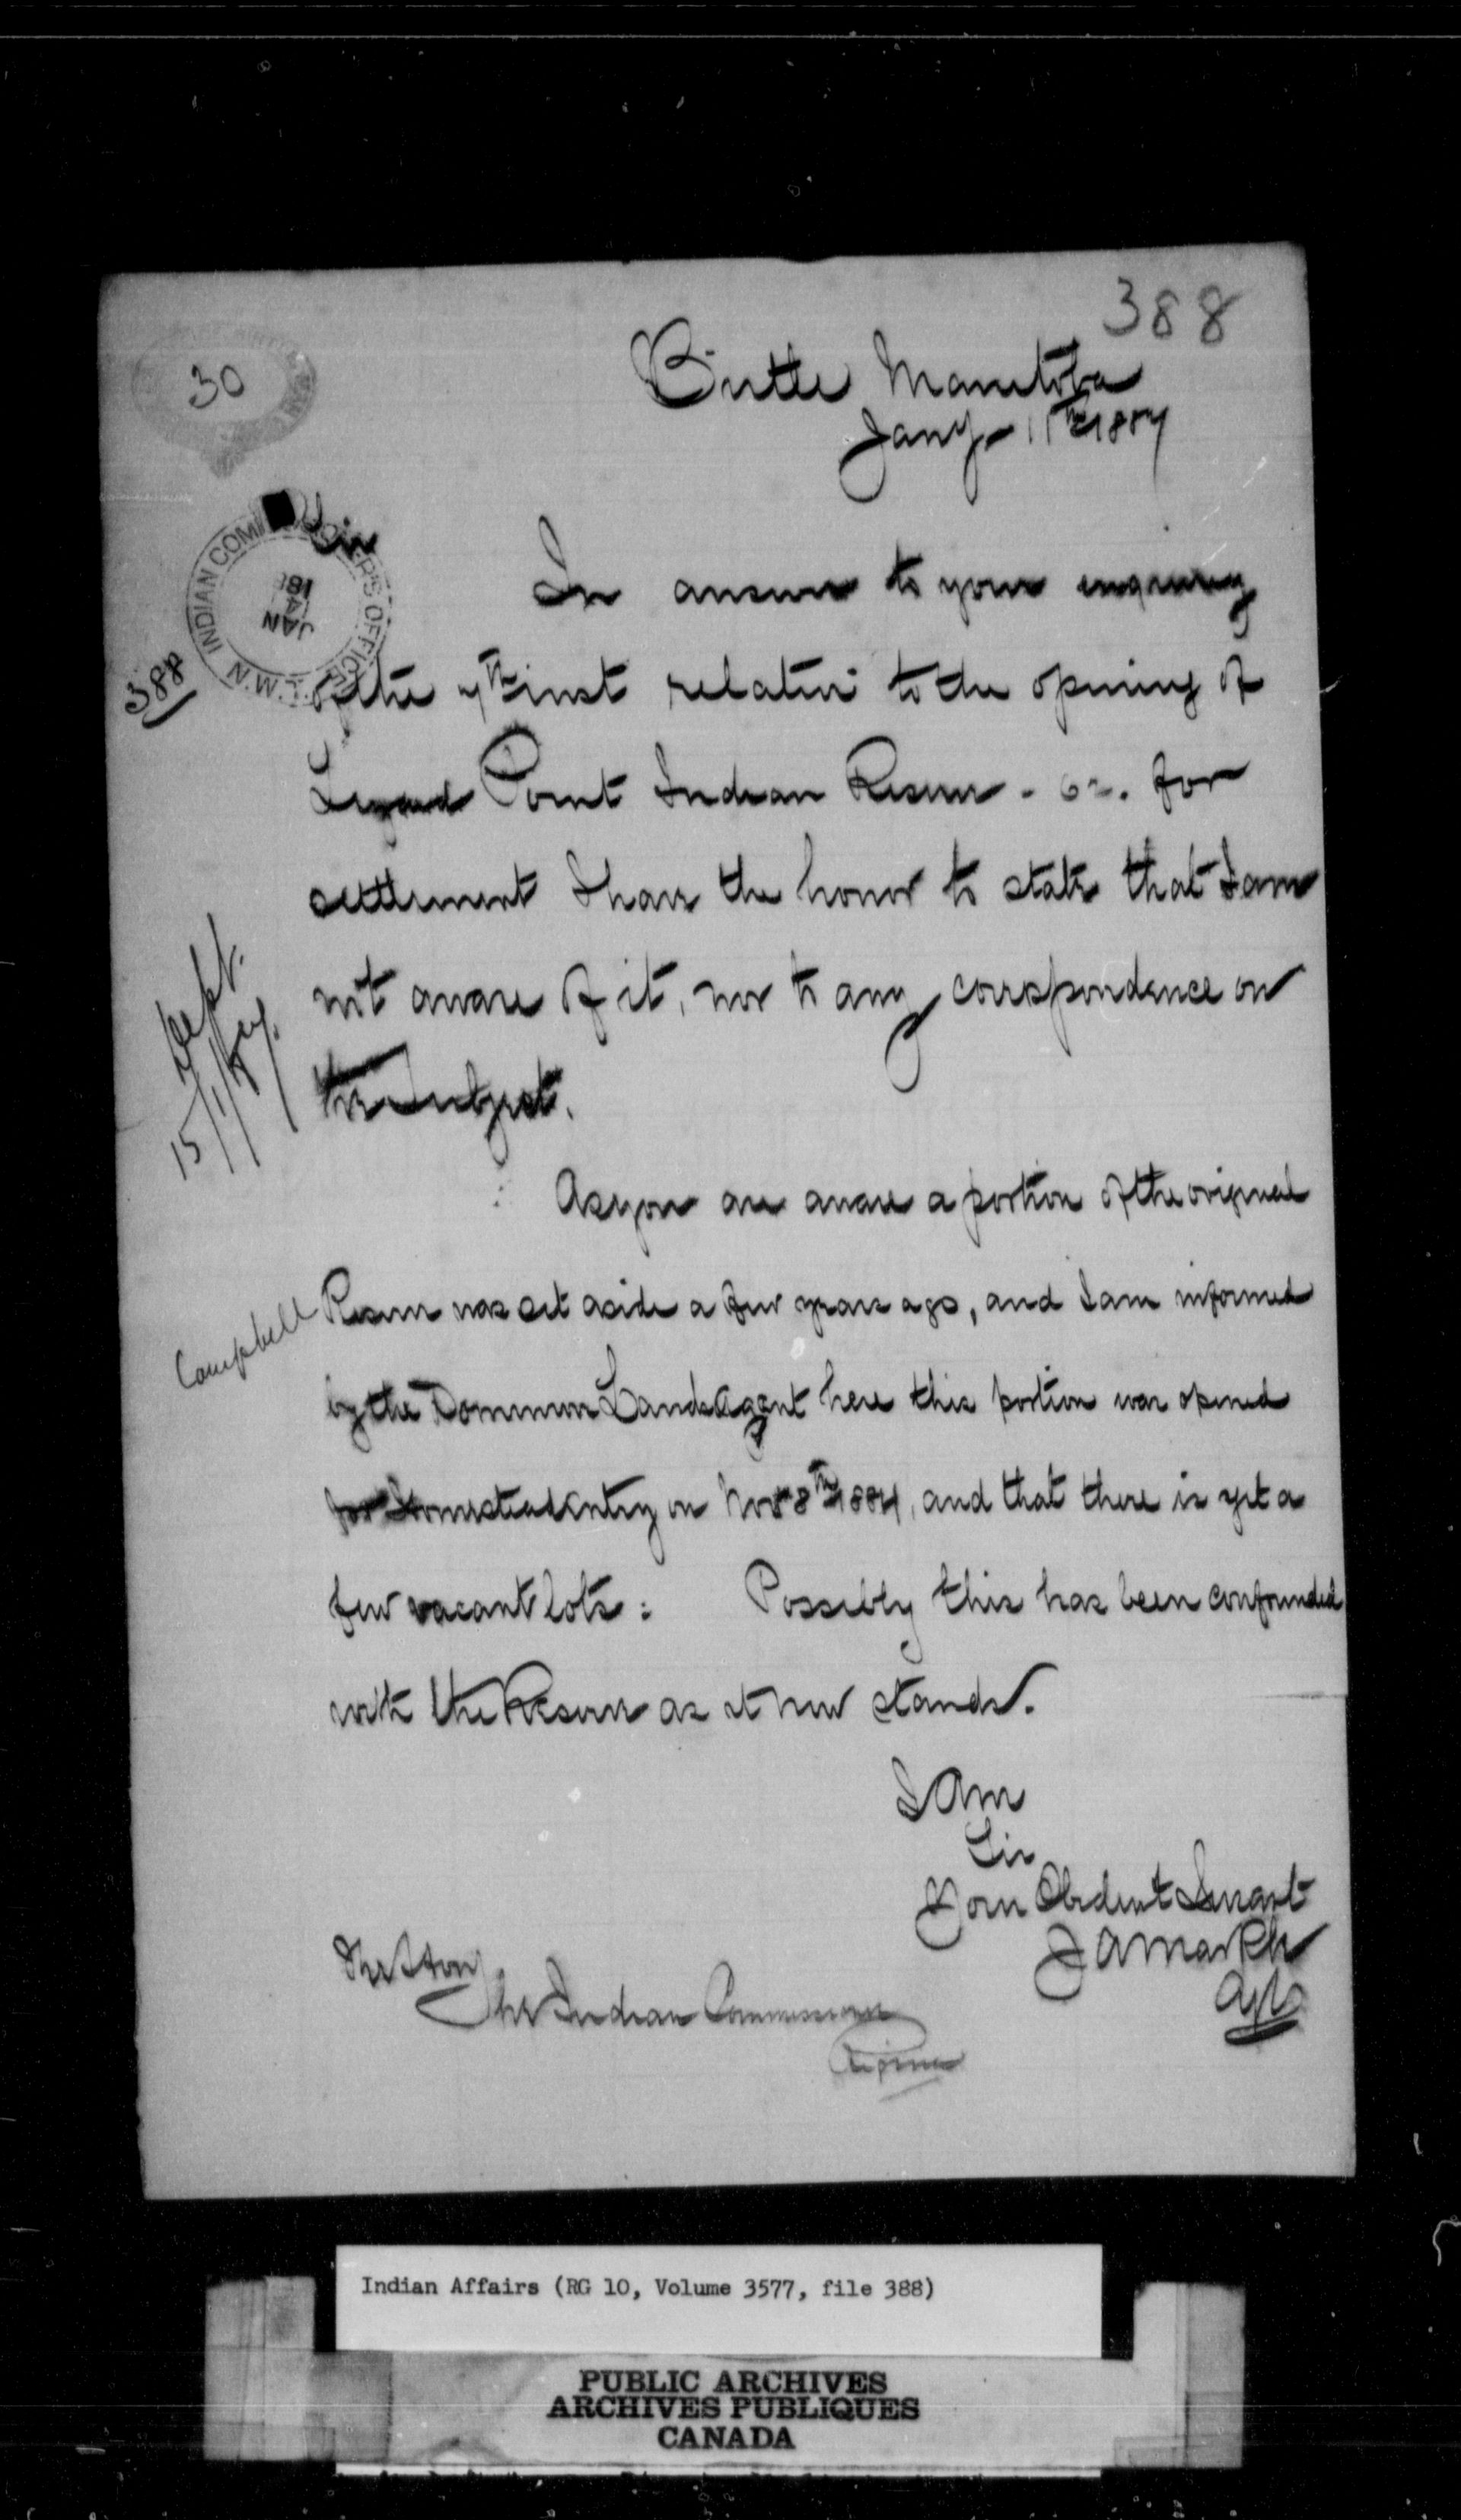 388
30
Birtle Manitoba
Jany - 11th 1887
INDIAN COMMISSIONERS OFFICE N.W.T.
JAN
Sir
In answer to your inquiry
388
of the 7th inst relative to the opening of
Lizard Point Indian Reserve - 62. for
settlement I have the honor to state that I am
not aware of it, nor to any correspondence on
the Subject.
Dept.
15/1/87.
As you are aware a portion of the original
Campbell
Reserve was set aside a few years ago, and I am informed
by the Dominion Lands Agent here this portion was opened
for Homestead Entry on Nov 8th 1884, and that there is yet a
few vacant lots: Possibly this has been confounded
with the Reserve as it now stands.
I Am
Sir
Your Obedient Servant
J A Markle
Agt
The Hon
The Indian Commissioner
Regina
Indian Affairs (RG 10, Volume 3577, file 388)
PUBLIC ARCHIVES
ARCHIVES PUBLIQUES
CANADA